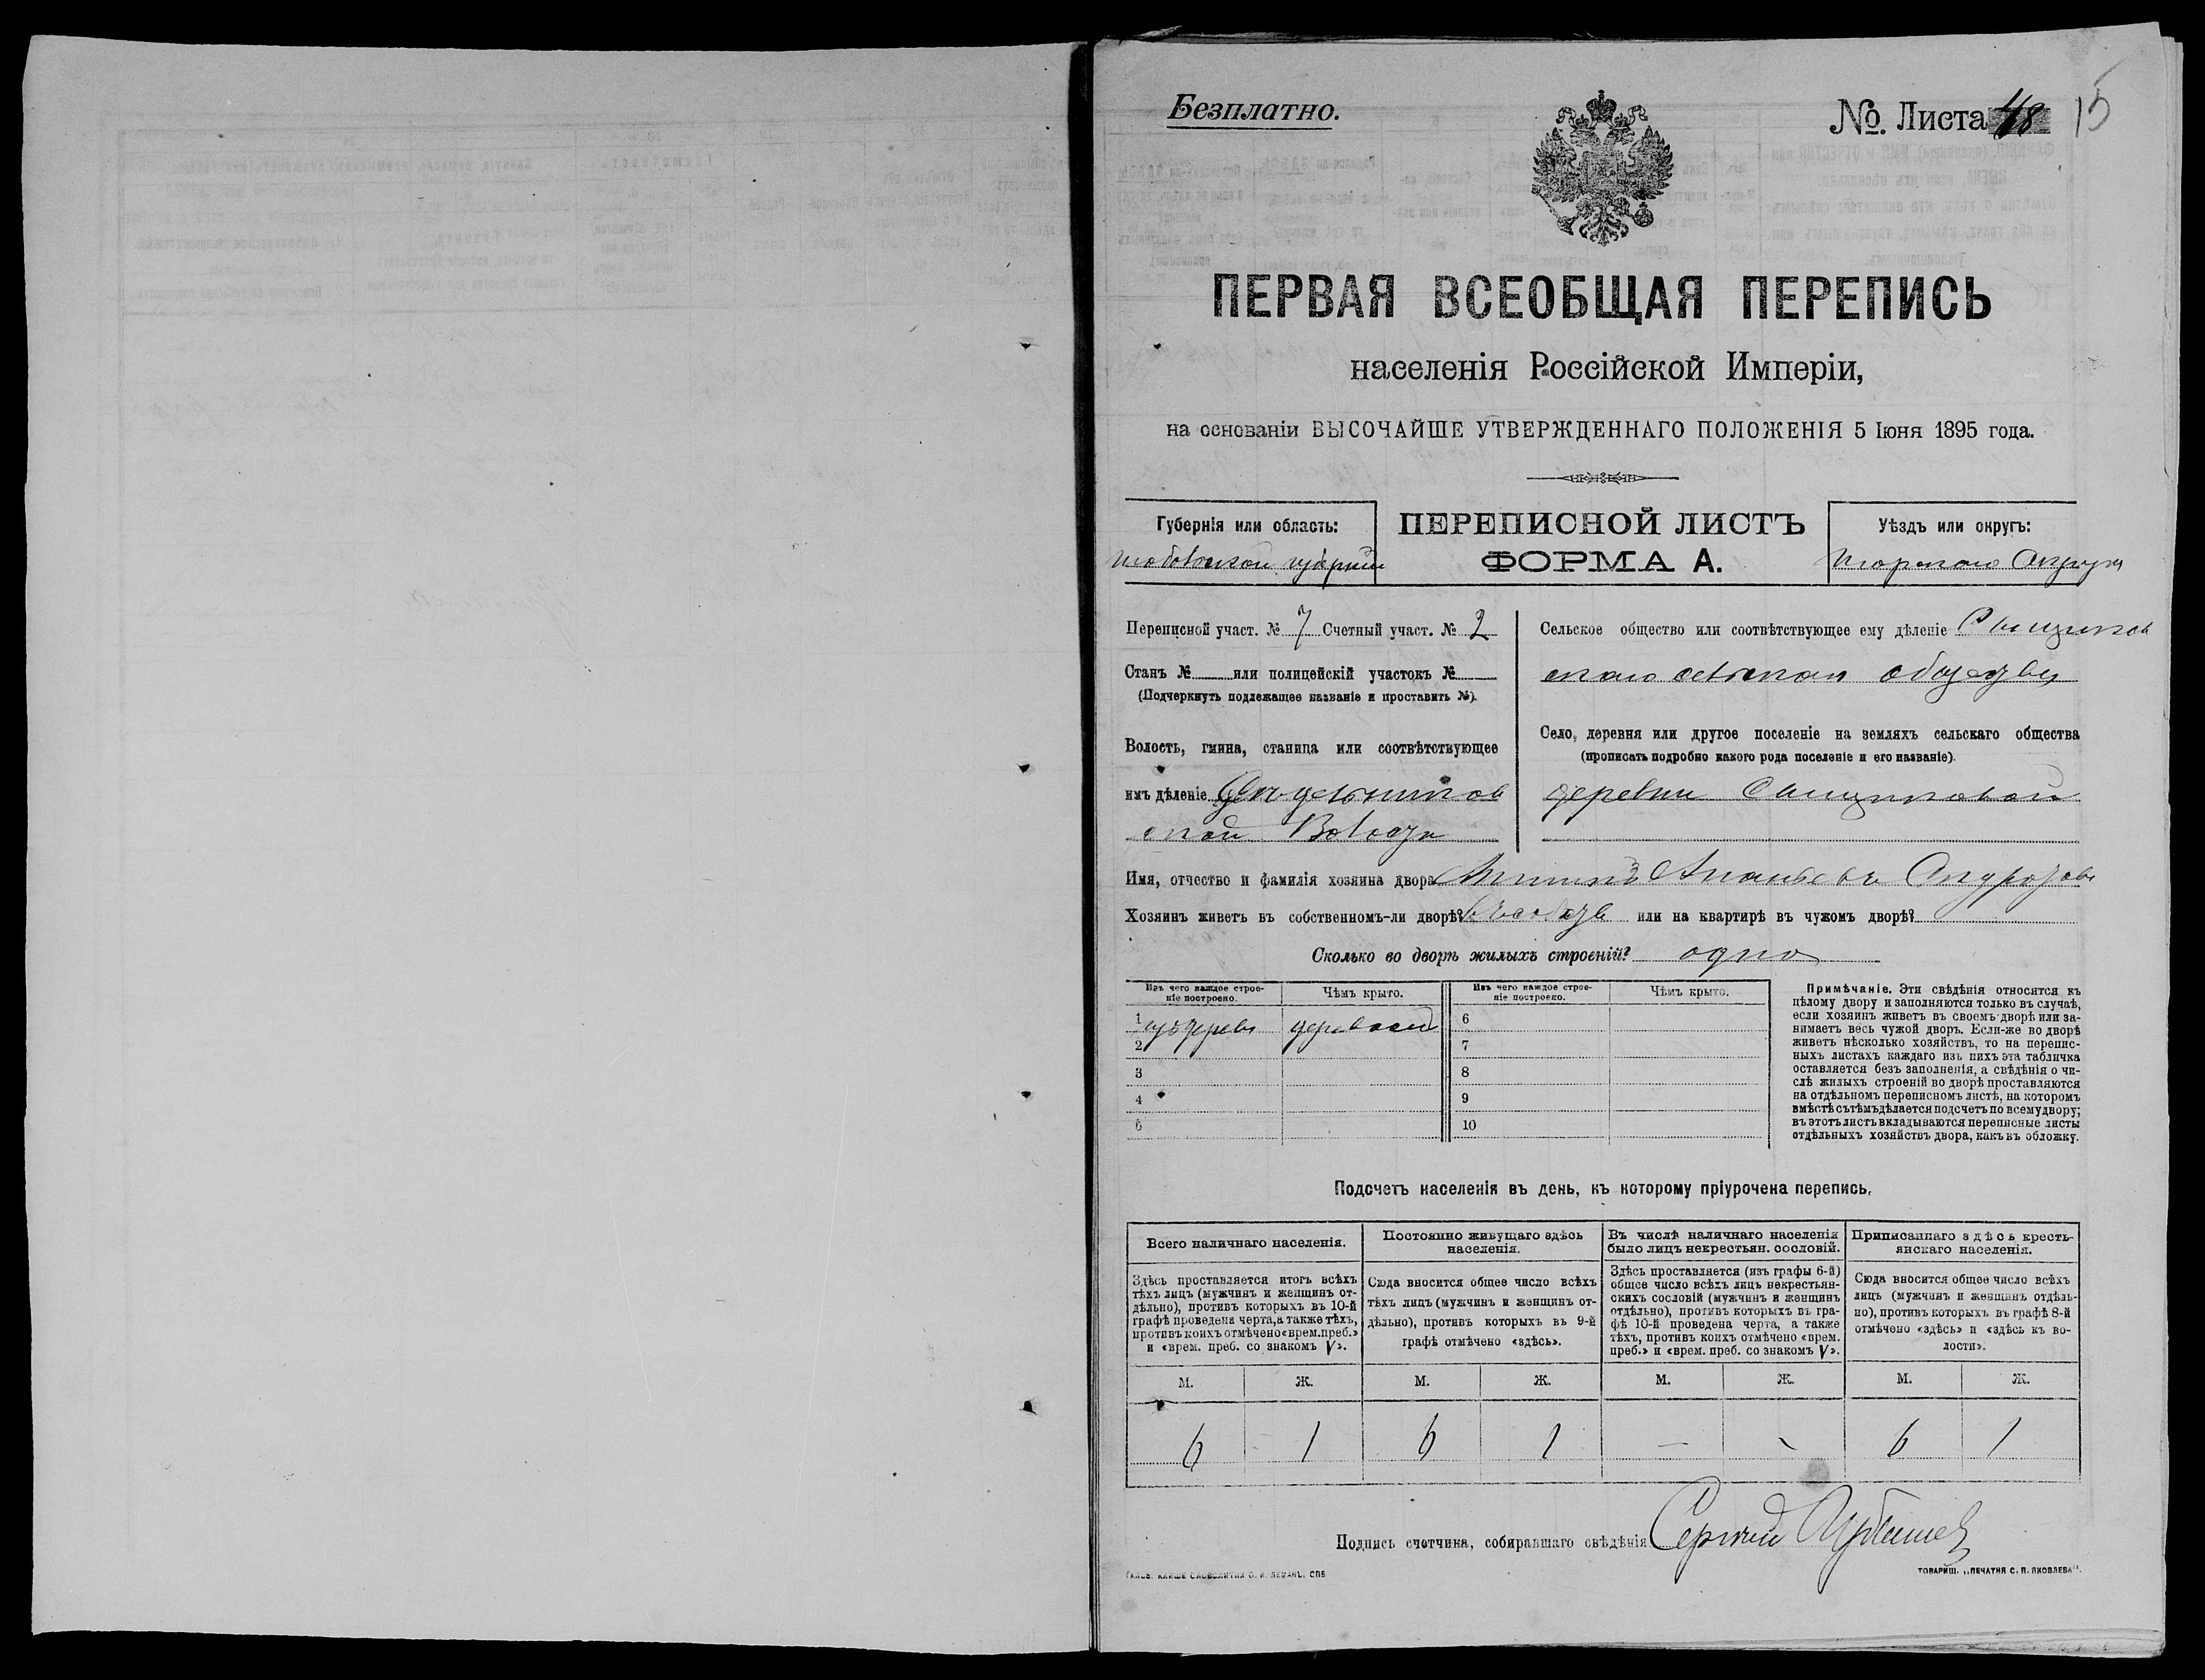 Безплатно.
№ Листа 48 15
ПЕРВАЯ ВСЕОБЩАЯ ПЕРЕПИСЬ
населенія Россійской Имперіи,
на основаніи ВЫСОЧАЙШЕ УТВЕРЖДЕННАГО ПОЛОЖЕНІЯ 5 Іюня 1895 года.
Губернія или область:
Тобольской губерніи
ПЕРЕПИСНОЙ ЛИСТЪ
ФОРМА А.
Уѣздъ или округъ:
Тарскаго Округа
Переписной участ. № 7 Счетный участ. № 2
Станъ № или полицейскій участокъ №
(Подчеркнуть подлежащее названіе и проставить №).
Волость, гмина, станица или соотвѣтствующее
имъ дѣленіе
ской Волости
Сельское общество или соотвѣтствующее ему дѣленіе
скаго сельскаго общества
Село, деревня или другое поселеніе на земляхъ сельскаго общества
(прописать подробно какого рода поселеніе и его названіе).
деревни
Имя, отчество и фамилія хозяина двора Ананьевъ
Хозяинъ живетъ въ собственномъ-ли дворѣ? или на квартирѣ въ чужомъ дворѣ?
Сколько во дворѣ жилыхъ строеній? одно
Изъ чего каждое строе-
ніе построено.
Чѣмъ крыто.
Изъ чего каждое строе-
ніе построено.
Чѣмъ крыто.
1 изъ дерева деревомъ 6
2 7
3 8
4 9
5 10
Примѣчаніе. Эти свѣдѣнія относятся къ
цѣлому двору и заполняются только въ случаѣ,
если хозяинъ живетъ въ своемъ дворѣ или за-
нимаетъ весь чужой дворъ. Если-же во дворѣ
живетъ нѣсколько хозяйствъ, то на перепис-
ныхъ листахъ каждаго изъ нихъ эта табличка
оставляется безъ заполненія, а свѣдѣнія о чи-
слѣ жилыхъ строеній во дворѣ проставляются
на отдѣльномъ переписномъ листѣ, на которомъ
вмѣстѣ съ тѣмъ дѣлается подсчетъ по всему двору;
въ этотъ листъ вкладываются переписные листы
отдѣльныхъ хозяйствъ двора, какъ въ обложку.
Подсчетъ населенія въ день, къ которому пріурочена перепись.
Всего наличнаго населенія.
Здѣсь проставляется итогъ всѣхъ
тѣхъ лицъ (мужчинъ и женщинъ от-
дѣльно), противъ которыхъ въ 10-й
графѣ проведена черта, а также тѣхъ,
противъ коихъ отмѣчено «врем. преб.»
и «врем. преб. со знакомъ V».
Постоянно живущаго здѣсь
населенія.
Сюда вносится общее число всѣхъ
тѣхъ лицъ (мужчинъ и женщинъ от-
дѣльно), противъ которыхъ въ 9-й
графѣ отмѣчено «здѣсь».
Въ числѣ наличнаго населенія
было лицъ некрестьян. сословій.
Здѣсь проставляется (изъ графы 6-й)
общее число всѣхъ лицъ некрестьян-
скихъ сословій (мужчинъ и женщинъ
отдѣльно), противъ которыхъ въ гра-
фѣ 10-й проведена черта, а также
тѣхъ, противъ коихъ отмѣчено «врем.
преб.» и «врем. преб. со знакомъ V».
Приписаннаго здѣсь кресть-
янскаго населенія.
Сюда вносится общее число всѣхъ
лицъ (мужчинъ и женщинъ отдѣль-
но), противъ которыхъ въ графѣ 8-й
отмѣчено «здѣсь» и «здѣсь къ во-
лости».
М. Ж. М. Ж. М. Ж. М. Ж.
6 1 6 1 — — 6 1
Подпись счетчика, собиравшаго свѣдѣнія Сергѣй
ТОВАРИЩ. „ПЕЧАТНЯ С. П. ЯКОВЛЕВА".